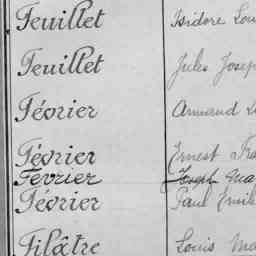 Feuillet Isidore Lou
Feuillet Jules Josep
Février Armand L
Février Ernest Fra
Fevrier Joseph Ma
Février Paul Emile
Filâtre Louis Ma